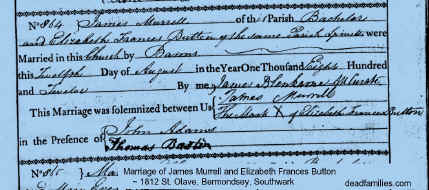 No 864 James Murrell of the Parish Bachelor
and Elizabeth Frances Button of the same Parish Spinster were
Married in this Church by Banns
this Twelfth Day of August in the Year One Thousand Eight Hundred
and Twelve By me James Blenkarne Curate
This Marriage was solemnized between Us James Murrell
The Mark X of Elizabeth Frances Button
in the Presence of John Adams
Thomas Bastin
No 865
Marriage of James Murrell and Elizabeth Frances Button
~ 1812 St. Olave, Bermondsey, Southwark
deadfamilies.com